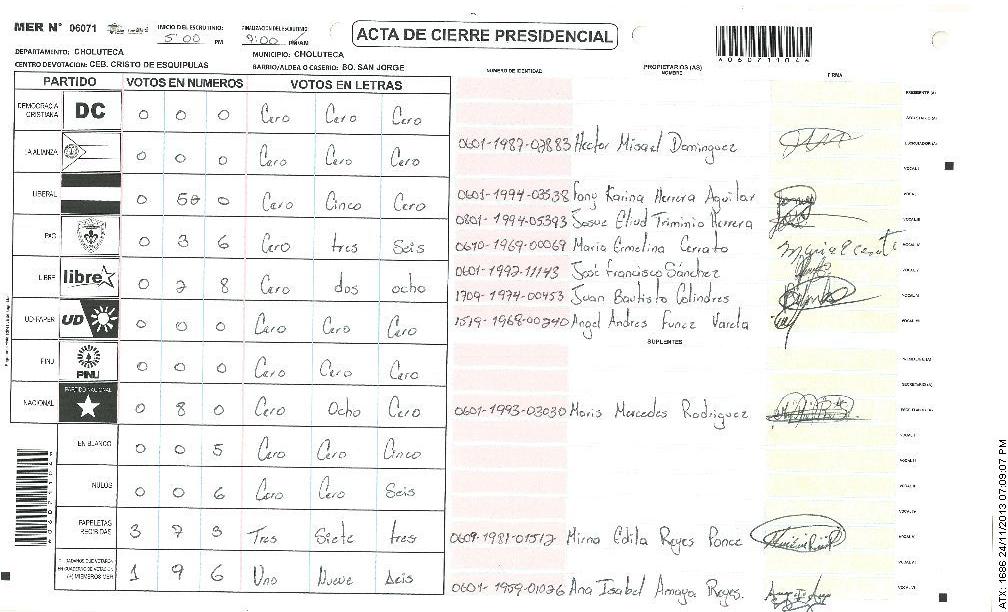 MER N° 06071
INICIO DEL ESCRUTINIO: 5:00 PM
FINALIZACION DEL ESCRUTINIO: 9:00 PM/AM
ACTA DE CIERRE PRESIDENCIAL
DEPARTAMENTO: CHOLUTECA
MUNICIPIO: CHOLUTECA
CENTRO DE VOTACION: CEB. CRISTO DE ESQUIPULAS
BARRIO/ALDEA O CASERIO: BO. SAN JORGE
PARTIDO VOTOS EN NUMEROS VOTOS EN LETRAS
NUMERO DE IDENTIDAD
PROPIETARIOS (AS)
NOMBRE
FIRMA
DEMOCRACIA CRISTIANA DC 0 0 0 Cero Cero Cero
LA ALIANZA 0 0 0 Cero Cero Cero
LIBERAL 0 5 0 Cero Cinco Cero
PAC 0 3 6 Cero tres Seis
LIBRE libre 0 2 8 Cero dos ocho
UD-FAPER UD 0 0 0 Cero Cero Cero
PINU PINU 0 0 0 Cero Cero Cero
NACIONAL PARTIDO NACIONAL 0 8 0 Cero Ocho Cero
EN BLANCO 0 0 5 Cero Cero Cinco
NULOS 0 0 6 Cero Cero Seis
PAPELETAS RECIBIDAS 3 7 3 Tres Siete tres
CIUDADANOS QUE VOTARON EN CUADERNO DE VOTACION (+) MIEMBROS MER 1 9 6 Uno Nueve Seis
0601-1987-02883 Hector Misael Dominguez
0601-1994-03538 Karina Herrera Aguilar
0801-1994-05393 Josue Eliud Triminio Herrera
0610-1969-00069 Maria Ermelina Cerrato
0601-1992-11143 José Francisco Sánchez
1709-1974-00453 Juan Bautista Colindres
1519-1968-00240 Angel Andres Funez Varela
SUPLENTES
0601-1993-03030 Maris Mercedes Rodriguez
0609-1981-01512 Mirna Edila Reyes Ponce
0601-1959-01026 Ana Isabel Amaya Reyes.
6060711044
ATX: 1686 24/11/2013 07:09:07 PM